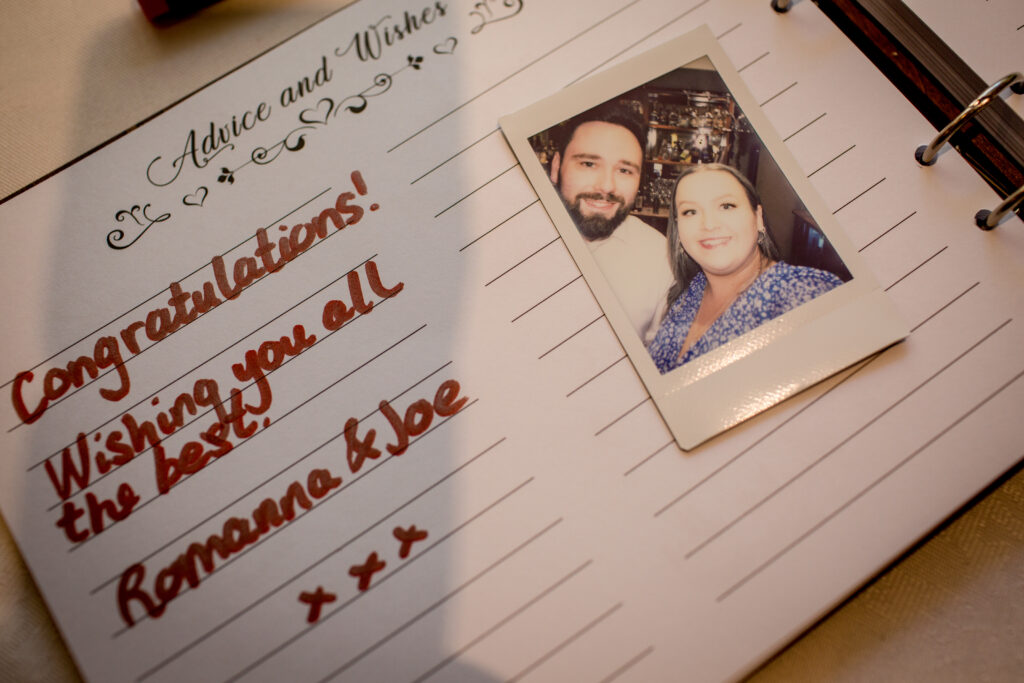 Advice and Wishes
Congratulations!
Wishing you all
the best!
Romanna & Joe
x x x